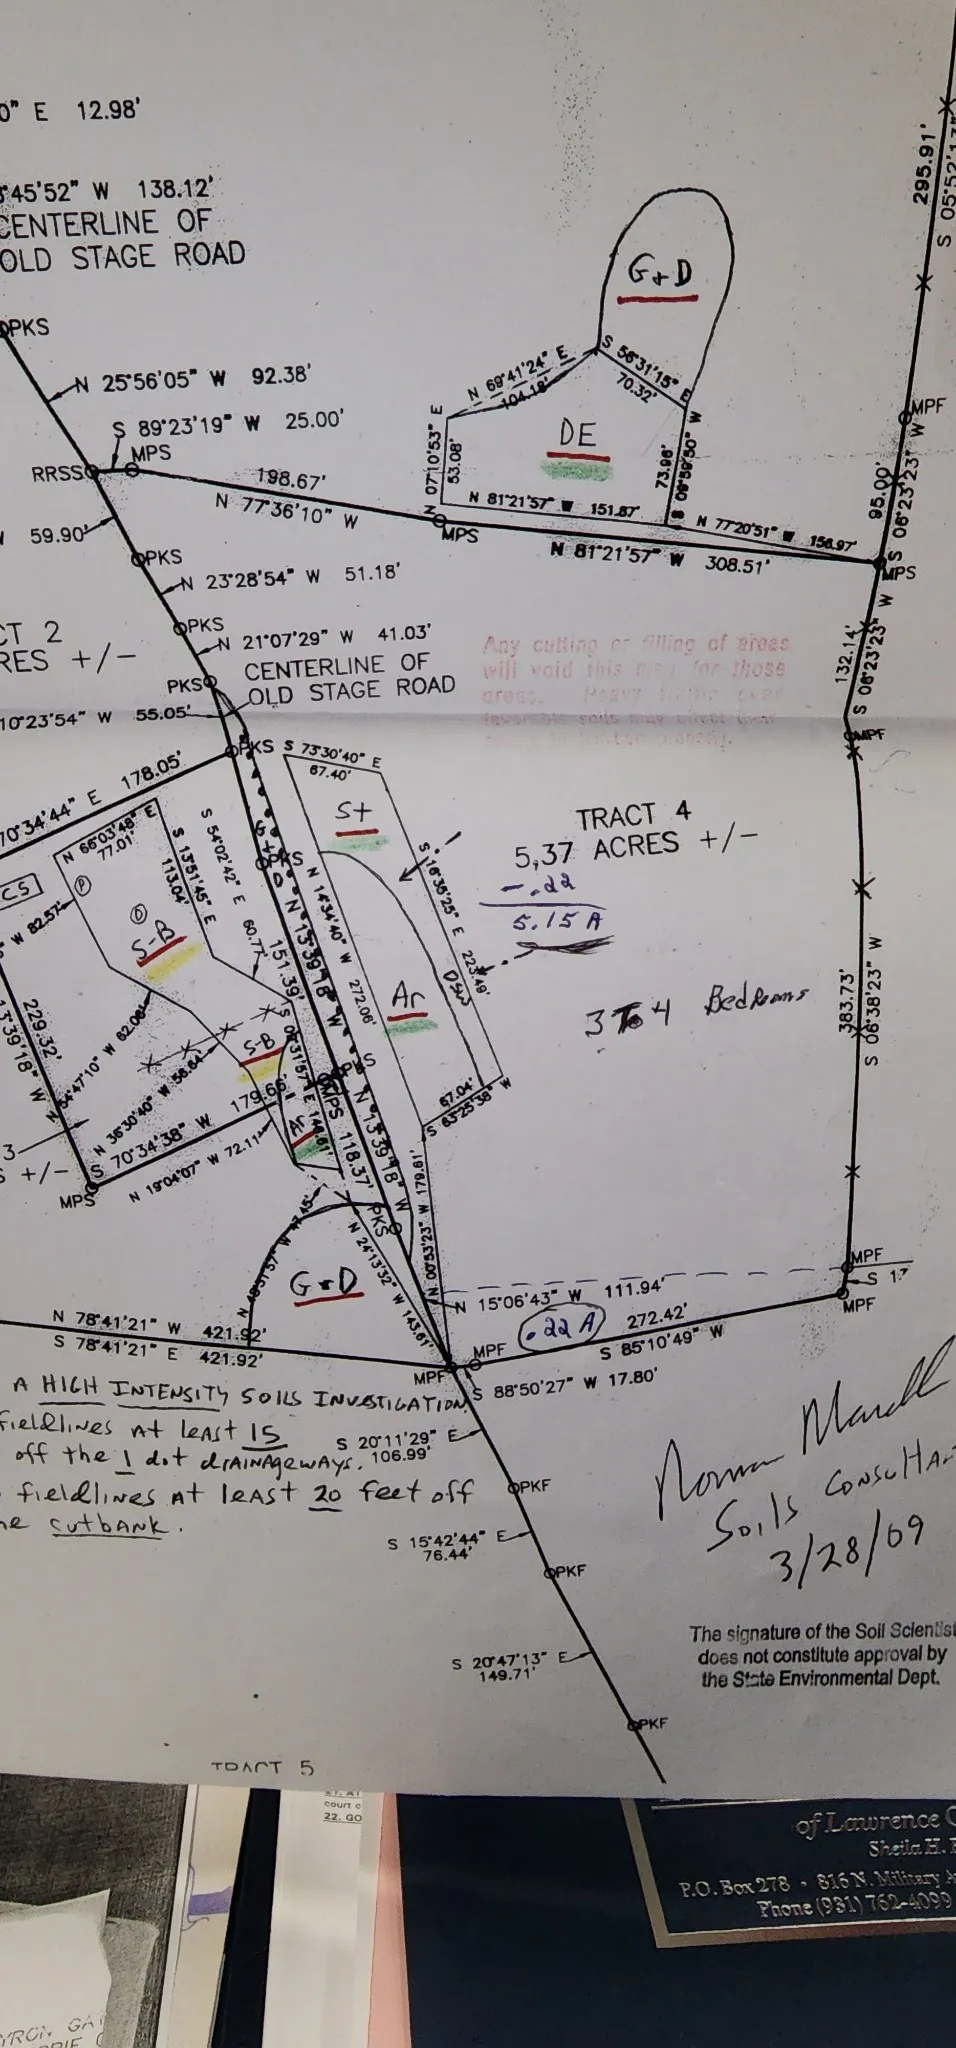 0" E 12.98'
45'52" W 138.12'
CENTERLINE OF
OLD STAGE ROAD
PKS
N 25°56'05" W 92.38'
S 89°23'19" W 25.00'
MPS
RRSS
198.67'
N 77°36'10" W
59.90'
PKS
N 23°28'54" W 51.18'
PKS
N 21°07'29" W 41.03'
CENTERLINE OF
OLD STAGE ROAD
PKS
10°23'54" W 55.05'
CT 2
RES +/-
295.91'
G+D
N 69°41'24" E
104.18'
S 56°31'15" E
70.32'
N 07°10'53" E
53.08'
DE
73.96'
S 09°59'50" W
N 81°21'57" W 151.87'
N 77°20'51" W 156.97'
MPS
N 81°21'57" W 308.51'
MPF
95.00'
S 06°23'23" W
MPS
132.14'
S 06°23'23" W
MPF
Any cutting or filling of areas
will void this map for those
areas. Heavy traffic over
favorable soils may effect their
PKS
178.05'
70°34'44" E
S 73°30'40" E
67.40'
St
TRACT 4
5.37 ACRES +/-
-.22
5.15 A
3 To 4 Bedrooms
N 66°03'48" E
77.01'
S 13°51'45" E
113.04'
S 54°02'42" E 60.77'
PKS
C5
W 82.57'
P
D
S-B
N 14°34'40" W 272.06'
S 16°36'25" E 223.49'
Ar
151.39'
N 13°39'18" W
229.32'
13°39'18" W
54°47'10" W 62.06'
S-B
N 36°30'40" W 56.64'
179.66'
S 70°34'38" W
N 19°04'07" W 72.11'
3
S +/-
MPS
Ar
MPS
118.37'
N 13°39'18" W
PKS
67.04'
S 63°25'38" W
N 00°53'23" W 179.61'
383.73'
S 06°38'23" W
G+D
N 24°13'32" W 143.61'
N 15°06'43" W 111.94'
MPF
S 17
MPF
.22 A
272.42'
S 85°10'49" W
N 78°41'21" W 421.92'
S 78°41'21" E 421.92'
MPF
MPF
S 88°50'27" W 17.80'
A HIGH INTENSITY SOILS INVESTIGATION.
fieldlines At least 15
off the 1 dot drainageways.
fieldlines At least 20 feet off
he cutbank.
S 20°11'29" E
106.99'
PKF
S 15°42'44" E
76.44'
PKF
S 20°47'13" E
149.71'
PKF
Soils Consultan
3/28/09
The signature of the Soil Scientist
does not constitute approval by
the State Environmental Dept.
TRACT 5
court c
22. GO
of Lawrence C
Sheila H.
P.O. Box 278 • 816 N. Military A
Phone (931) 762-4099